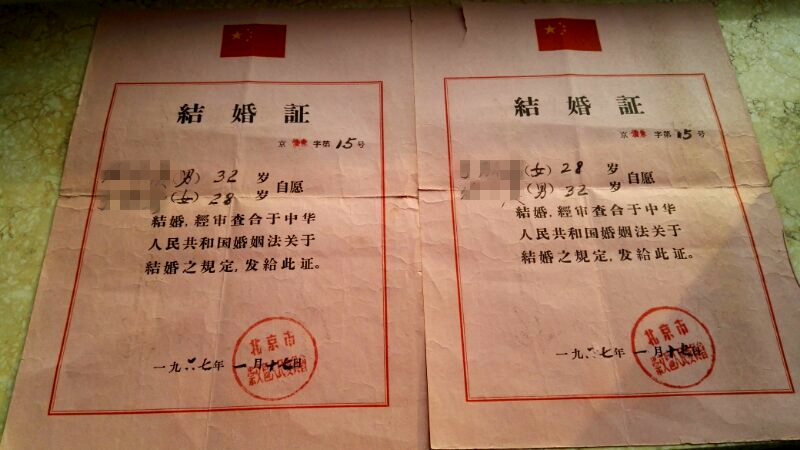 結婚証
京 字第15号
(男) 32 岁
自愿
(女) 28 岁
結婚,經审查合于中华
人民共和国婚姻法关于
結婚之規定,发給此証。
北京市
一九六七年一月十七日
結婚証
京 字第15号
(女) 28 岁
自愿
(男) 32 岁
結婚,經审查合于中华
人民共和国婚姻法关于
結婚之規定,发給此証。
北京市
一九六七年一月十七日